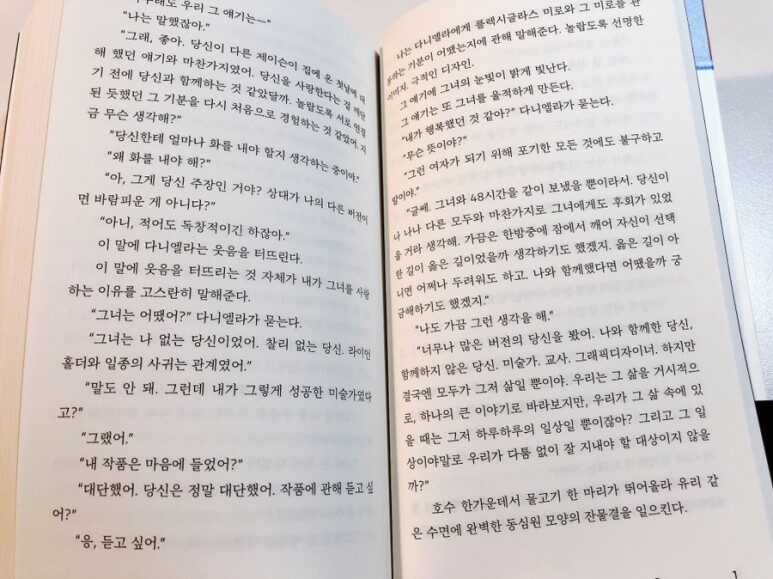 우리 그 얘기는—"
"나는 말했잖아."
"그래, 좋아. 당신이 다른 제이슨이 집에 온 첫날에 대
해 했던 얘기와 마찬가지였어. 당신을 사랑한다는 걸 깨닫
기 전에 당신과 함께하는 것 같았달까. 놀랍도록 서로 연결
된 듯했던 그 기분을 다시 처음으로 경험하는 것 같았어. 지
금 무슨 생각해?"
"당신한테 얼마나 화를 내야 할지 생각하는 중이야."
"왜 화를 내야 해?"
"아, 그게 당신 주장인 거야? 상대가 나의 다른 버전이
면 바람피운 게 아니다?"
"아니, 적어도 독창적이긴 하잖아."
이 말에 다니엘라는 웃음을 터뜨린다.
이 말에 웃음을 터뜨리는 것 자체가 내가 그녀를 사랑
하는 이유를 고스란히 말해준다.
"그녀는 어땠어?" 다니엘라가 묻는다.
"그녀는 나 없는 당신이었어. 찰리 없는 당신. 라이언
홀더와 일종의 사귀는 관계였어."
"말도 안 돼. 그런데 내가 그렇게 성공한 미술가였다
고?"
"그랬어."
"내 작품은 마음에 들었어?"
"대단했어. 당신은 정말 대단했어. 작품에 관해 듣고 싶
어?"
"응, 듣고 싶어."
나는 다니엘라에게 플렉시글라스 미로와 그 미로를 관
통하는 기분이 어땠는지에 관해 말해준다. 놀랍도록 선명한
이미지. 극적인 디자인.
그 얘기에 그녀의 눈빛이 밝게 빛난다.
그 얘기는 또 그녀를 울적하게 만든다.
"내가 행복했던 것 같아?" 다니엘라가 묻는다.
"무슨 뜻이야?"
"그런 여자가 되기 위해 포기한 모든 것에도 불구하고
말이야."
"글쎄. 그녀와 48시간을 같이 보냈을 뿐이라서. 당신이
나 나나 다른 모두와 마찬가지로 그녀에게도 후회가 있었
을 거라 생각해. 가끔은 한밤중에 잠에서 깨어 자신이 선택
한 길이 옳은 길이었을까 생각하기도 했겠지. 옳은 길이 아
니면 어쩌나 두려워도 하고. 나와 함께했다면 어땠을까 궁
금해하기도 했겠지."
"나도 가끔 그런 생각을 해."
"너무나 많은 버전의 당신을 봤어. 나와 함께한 당신,
함께하지 않은 당신. 미술가. 교사. 그래픽디자이너. 하지만
결국엔 모두가 그저 삶일 뿐이야. 우리는 그 삶을 거시적으
로, 하나의 큰 이야기로 바라보지만, 우리가 그 삶 속에 있
을 때는 그저 하루하루의 일상일 뿐이잖아? 그리고 그 일
상이야말로 우리가 다툼 없이 잘 지내야 할 대상이지 않을
까?"
호수 한가운데서 물고기 한 마리가 뛰어올라 유리 같
은 수면에 완벽한 동심원 모양의 잔물결을 일으킨다.